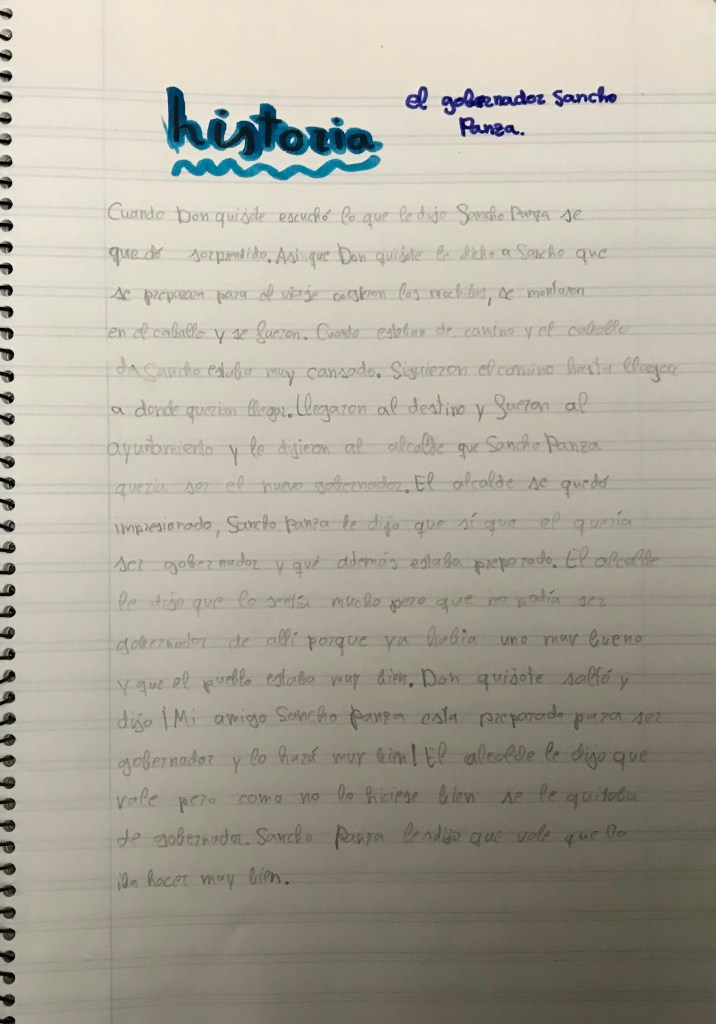 historia
el gobernador Sancho
Panza.
Cuando Don quijote escuchó lo que le dijo Sancho Panza se
quedó sorprendido. Asi que Don quijote le dicho a Sancho que
se preparan para el viaje cogieron las mochilas, se montaron
en el caballo y se fueron. Cuando estaban de camino y el caballo
da Sancho estaba muy cansado. Siguieron el camino hasta llegar
a donde querian llegar. Llegaron al destino y fueron al
ayuntamiento y le dijieron al alcalde que Sancho Panza
queria ser el nuevo gobernador. El alcalde se quedó
impresionado, Sancho Panza le dijo que sí que el quería
ser gobernador y qué además estaba preparado. El alcalde
le dijo que lo sentía mucho pero que no podía ser
gobernador de allí porque ya habia uno muy bueno
y que el pueblo estaba muy bien. Don quijote saltó y
dijo ¡Mi amigo Sancho Panza esta preparado para ser
gobernador y lo hará muy bien! El alcalde le dijo que
vale pero como no lo hiciese bien se le quitaba
de gobernador. Sancho Panza le dijo que vale que lo
iba hacer muy bien.